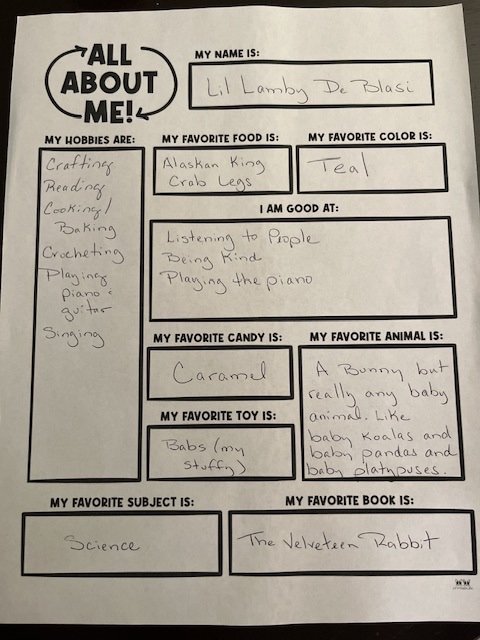 ALL
ABOUT
ME!
MY NAME IS:
Lil Lamby De Blasi
MY HOBBIES ARE:
Crafting
Reading
Cooking/
Baking
Crocheting
Playing
piano &
guitar
Singing
MY FAVORITE FOOD IS:
Alaskan King
Crab Legs
MY FAVORITE COLOR IS:
Teal
I AM GOOD AT:
Listening to People
Being Kind
Playing the piano
MY FAVORITE CANDY IS:
Caramel
MY FAVORITE TOY IS:
Babs (my
stuffy)
MY FAVORITE ANIMAL IS:
A Bunny but
really any baby
animal. Like
baby koalas and
baby pandas and
baby platypuses.
MY FAVORITE SUBJECT IS:
Science
MY FAVORITE BOOK IS:
The Velveteen Rabbit